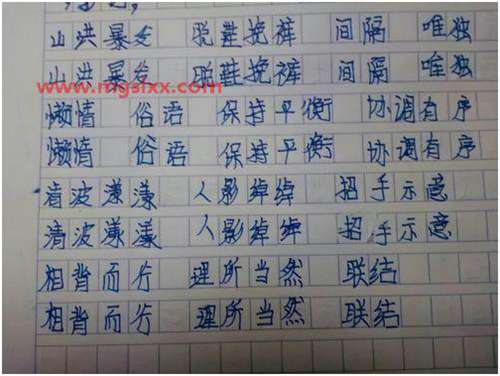 山洪暴发 脱鞋挽裤 间隔 唯独
山洪暴发 脱鞋挽裤 间隔 唯独
www.mgslxx.com
懒惰 俗语 保持平衡 协调有序
懒惰 俗语 保持平衡 协调有序
清波漾漾 人影绰绰 招手示意
清波漾漾 人影绰绰 招手示意
相背而行 理所当然 联结
相背而行 理所当然 联结